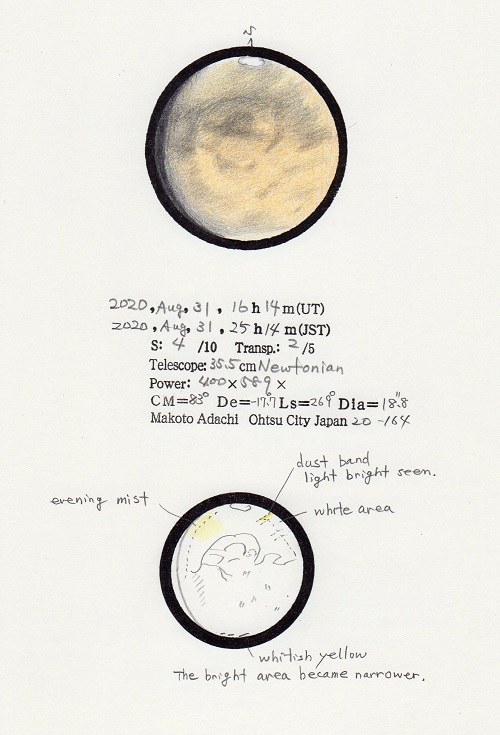 N
2020, Aug, 31, 16h14m(UT)
2020, Aug, 31, 25h14m(JST)
S: 4 /10 Transp.: 2/5
Telescope: 35.5cm Newtonian
Power: 400×589×
CM=83° De=-17.7° Ls=269° Dia=18.8"
Makoto Adachi Ohtsu City Japan 20-164
dust band
light bright seen.
evening mist
white area
whitish yellow
The bright area became narrower.